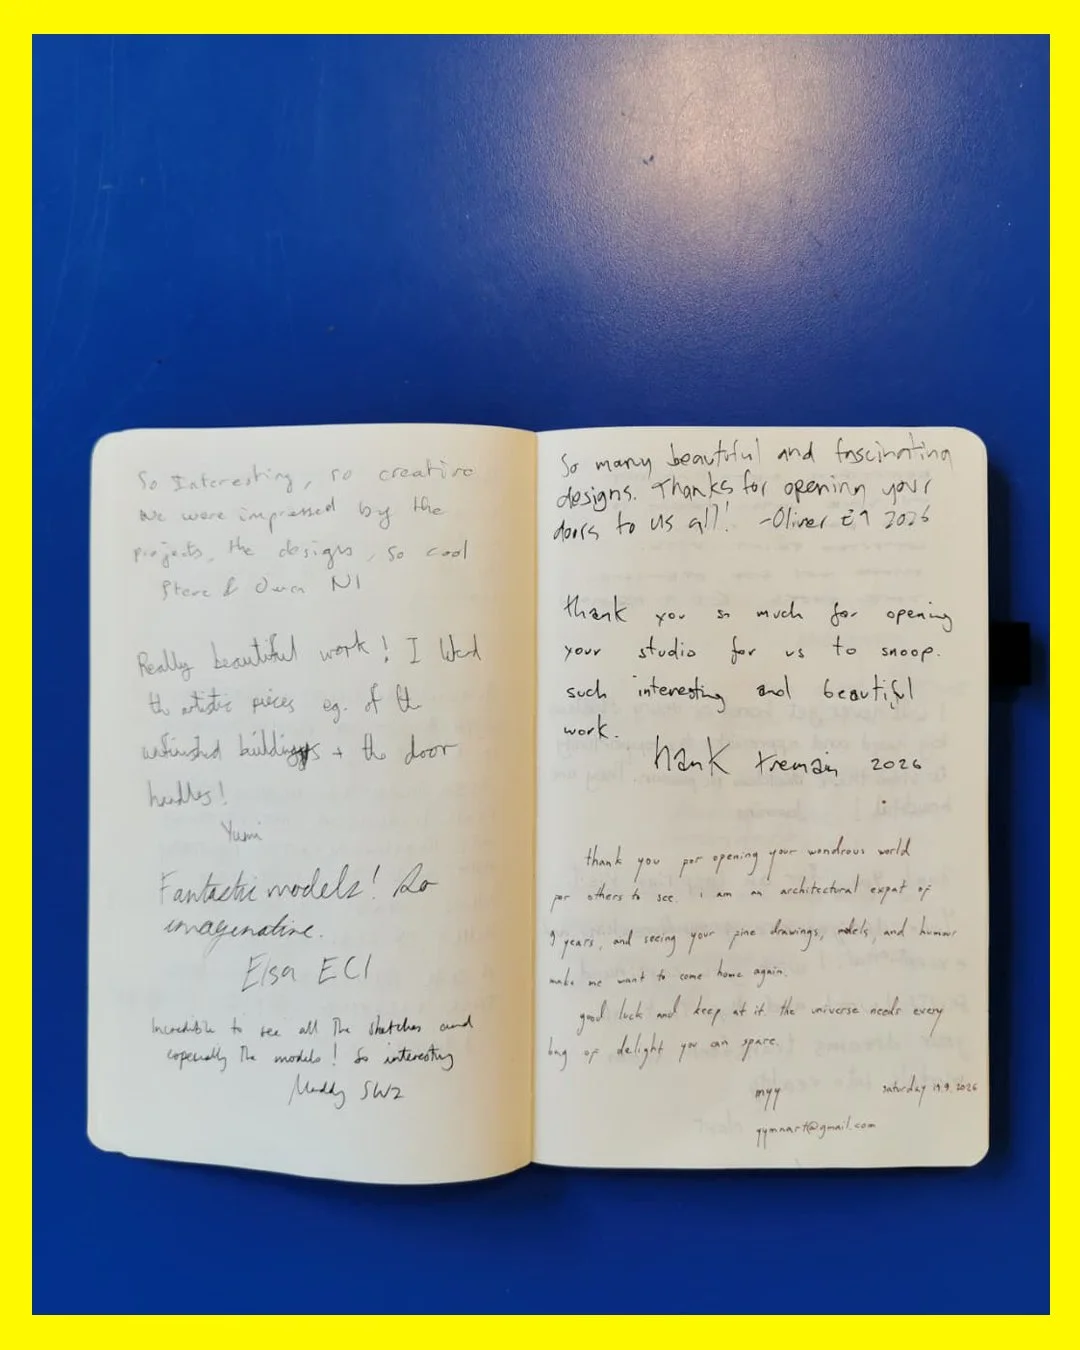 So Interesting, so creative
We were impressed by the
projects, the designs, so cool
Steve & Owen N1
Really beautiful work! I liked
the artistic pieces eg. of the
unfinished buildings + the door
handles!
Yumi
Fantastic models! So
imaginative.
Elsa EC1
Incredible to see all the sketches and
especially the models! So interesting
Maddy SW2
So many beautiful and fascinating
designs. Thanks for opening your
doors to us all! -Oliver E9 2026
thank you so much for opening
your studio for us to snoop.
such interesting and beautiful
work.
hank tremain 2026
thank you for opening your wondrous world
for others to see. i am an architectural expat of
9 years, and seeing your fine drawings, models, and humour
make me want to come home again.
good luck and keep at it. the universe needs every
bag of delight you can spare.
myy saturday 19.9.2026
yymnart@gmail.com